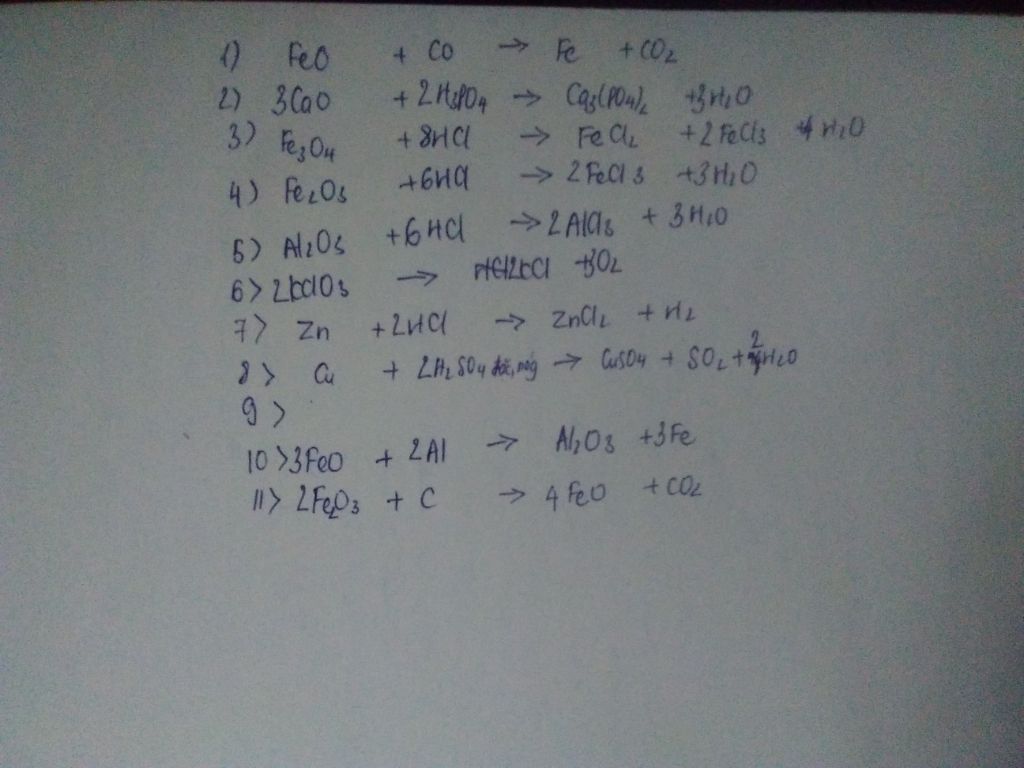 1) FeO + CO → Fe + CO2
2) 3CaO + 2H3PO4 → Ca3(PO4)2 + 3H2O
3) Fe3O4 + 8HCl → FeCl2 + 2FeCl3 + 4H2O
4) Fe2O3 + 6HCl → 2FeCl3 + 3H2O
5) Al2O3 + 6HCl → 2AlCl3 + 3H2O
6> 2KClO3 → 2KCl + 3O2
7> Zn + 2HCl → ZnCl2 + H2
8> Cu + 2H2SO4 đặc, nóg → CuSO4 + SO2 + 2H2O
9>
10> 3FeO + 2Al → Al2O3 + 3Fe
11> 2Fe2O3 + C → 4FeO + CO2